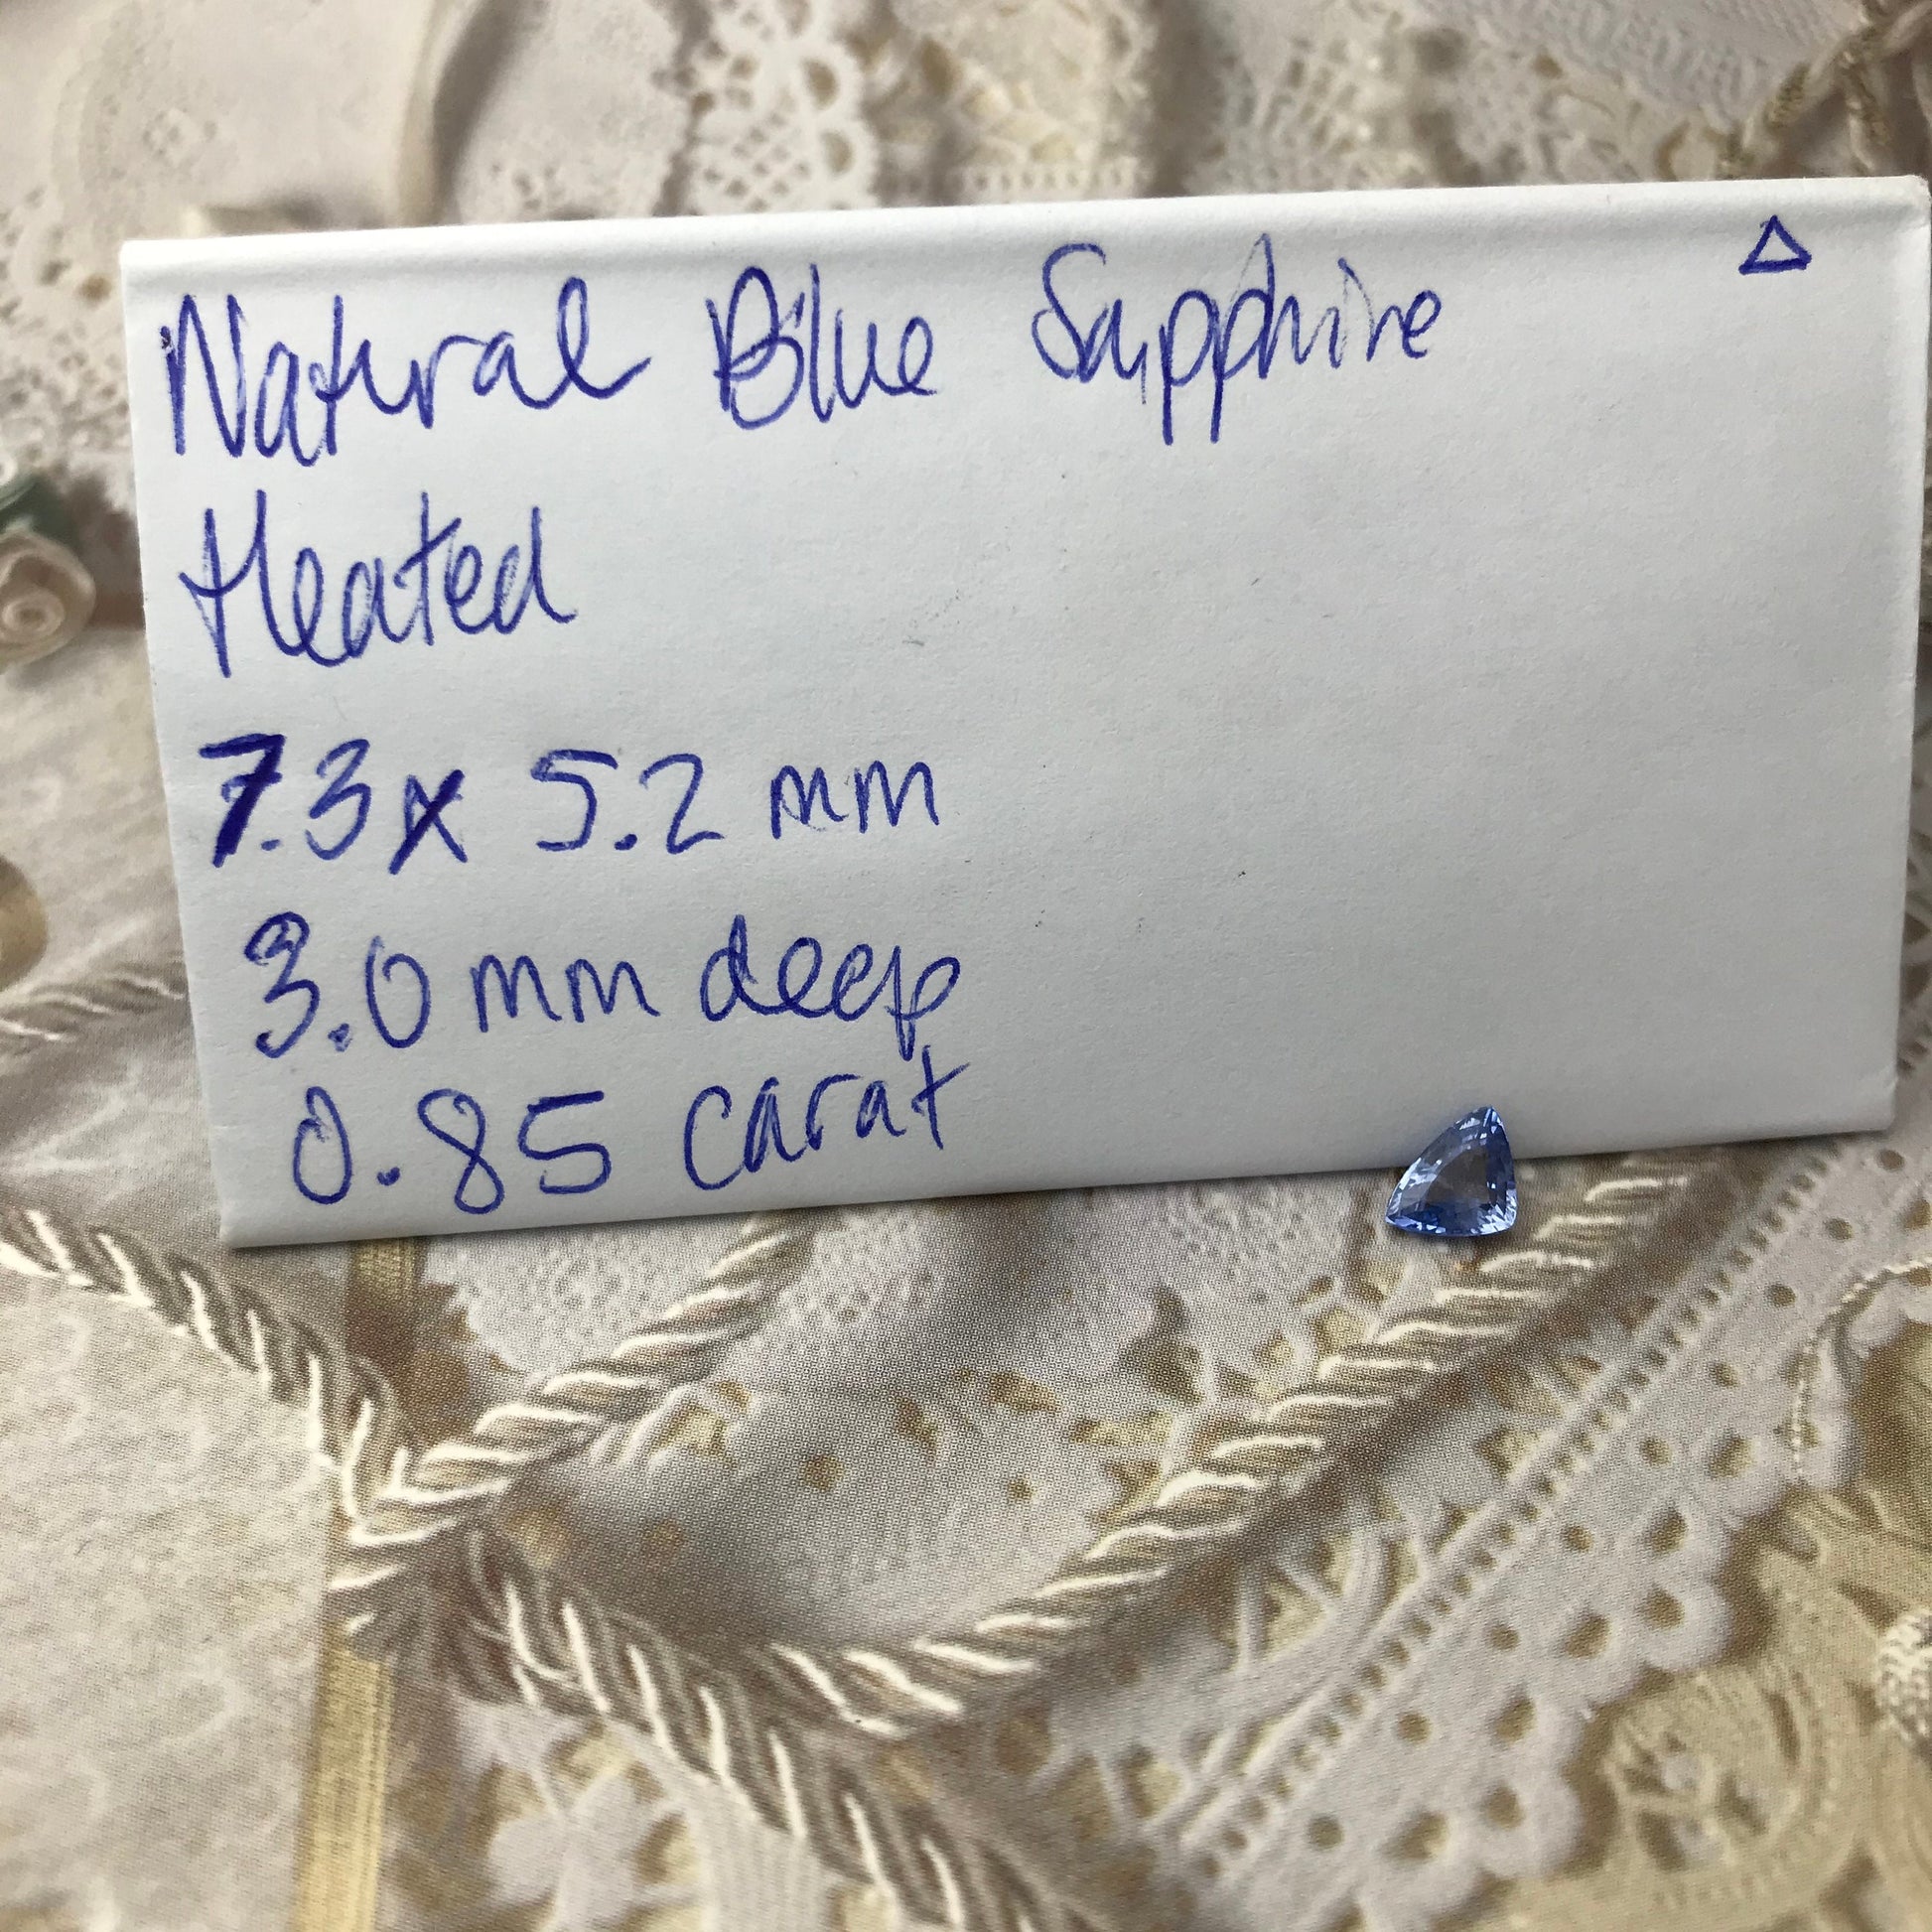 Natural Blue Sapphire
Heated
7.3 x 5.2 mm
3.0 mm deep
0.85 carat